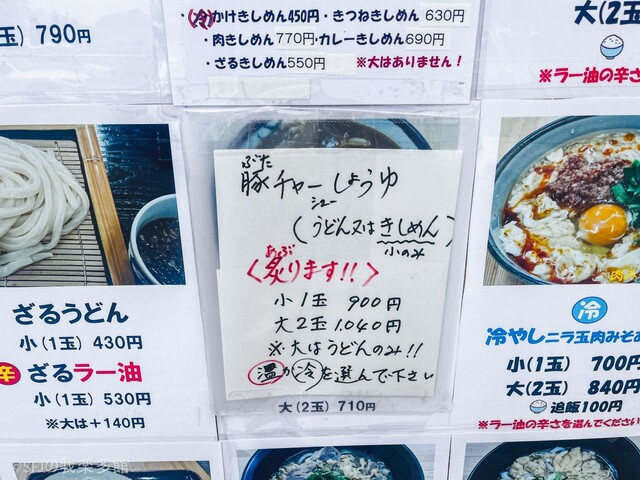 玉) 790円
・(冷)かけきしめん450円・きつねきしめん 630円
・肉きしめん770円・カレーきしめん690円
・ざるきしめん550円 ※大はありません!
大(2玉)
※ラー油の辛さ
ざるうどん
小(1玉) 430円
辛 ざるラー油
小(1玉) 530円
※大は+140円
ぶた
豚チャーしょうゆ
シュー
(うどん又はきしめん)
小のみ
あぶ
<炙ります!!>
小1玉 900円
大2玉 1,040円
※大はうどんのみ!!
温か冷を選んで下さい
大(2玉) 710円
冷
冷やしニラ玉肉みそ
小(1玉) 700円
大(2玉) 840円
追飯100円
※ラー油の辛さを選んでください